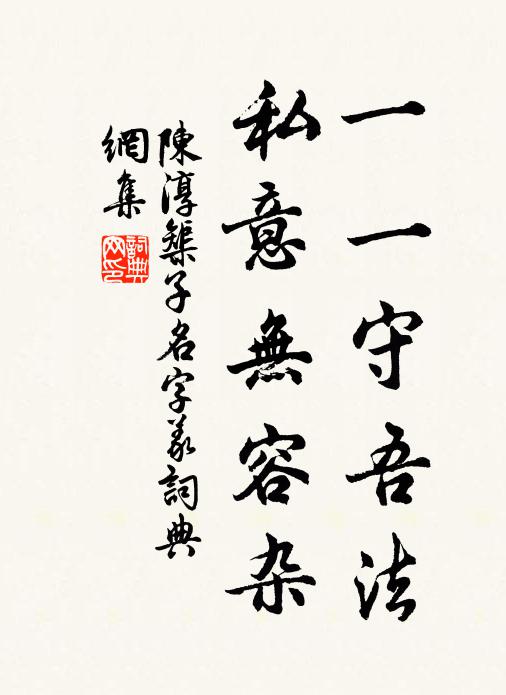 一一守吾法
私意無容杂
陳淳築子名字義詞典
網集
詞典网印